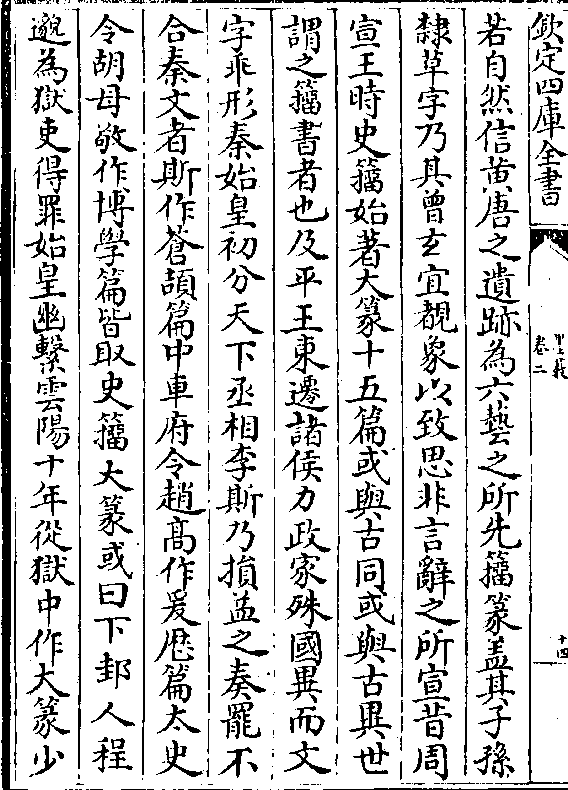 欽定四庫全書
卷二
十四
若自然信黄唐之遺跡為六藝之所先籀篆盖其子孫
隸草字乃其曾玄宜覩象以致思非言辭之所宣昔周
宣王時史籀始著大篆十五篇或與古同或與古異世
謂之籀書者也及平王東遷諸侯力政家殊國異而文
字乖形秦始皇初分天下丞相李斯乃損益之奏罷不
合秦文者斯作蒼頡篇中車府令趙髙作爰厯篇太史
令胡母敬作博學篇皆取史籀大篆或曰下邽人程
邈為獄吏得罪始皇幽繫雲陽十年從獄中作大篆少